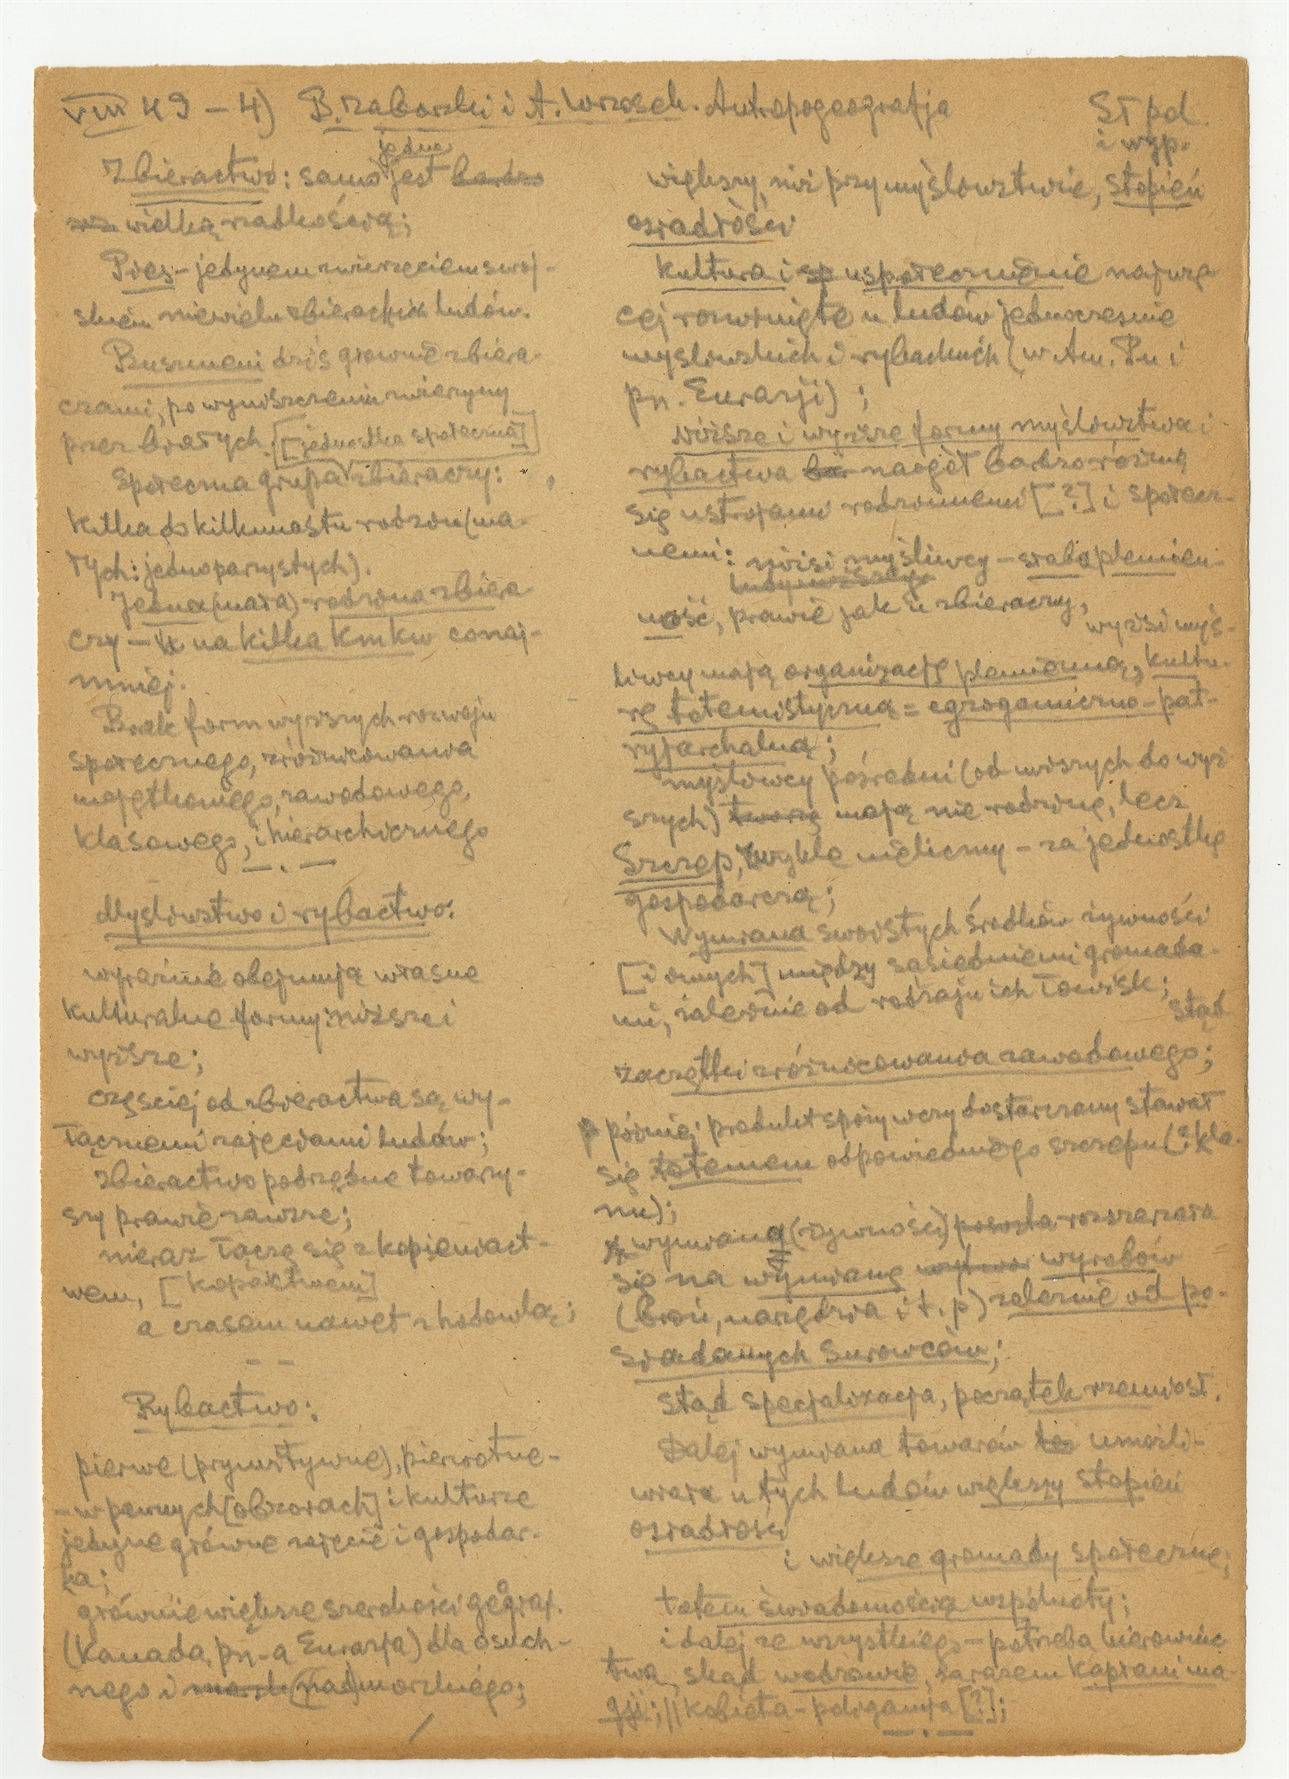 VIII 49 – 4) B. Zaborski i A. Wrzosek. Antropogeografja
St pd.
i wyp.
jedne
Zbieractwo: samo jest bardzo
wielką rzadkością;
Pies – jedynem zwierzęciem swoj-
skiem niewielu zbierackich ludów.
Buszmeni dziś głównie zbiera-
czami, po wyniszczeniu zwierzyny
przez białych. [jednostka społeczna]
Społeczna grupa zbieraczy:
kilka do kilkunastu rodzin (ma-
łych: jednoparzystych).
Jedna (mała) rodzina zbiera-
czy – na kilka kmkw conaj-
mniej.
Brak form wyższych rozwoju
społecznego, zróżnicowania
majątkowego, zawodowego,
klasowego, i hierarchicznego
Myślistwo i rybactwo:
wyraźnie obejmują własne
kulturalne formy: niższe i
wyższe;
częściej od zbieractwa są wy-
łącznemi zajęciami ludów;
zbieractwo podrzędne towarzy-
szy prawie zawsze;
nieraz łączą się z kopieniact-
wem, [kopactwem]
a czasem nawet z hodowlą;
Rybactwo:
pierwe (prymitywne), pierwotne-
– w pewnych [obszarach] i kulturze
jedyne główne zajęcie i gospodar-
ka;
głównie większe szerokości geograf.
(Kanada, pn-a Eurazja) dla osuch-
nego i morsk (nad)morskiego;
większy, niż przy myślowstwie, stopień
osiadłości
Kultura i sp uspołecznienie najwię
cej rozwinięte u ludów jednocześnie
myslowskich i rybackich (w Am. Pn i
pn. Eurazji);
Niższe i wyższe formy myślowstwa i
rybactwa naogół bardzo różnią
się ustrojami rodzinnemi [?] i społecz-
nemi: niżsi myśliwcy – słaba plemien-
ność, prawie jak u zbieraczy,
wyżsi myś-
liwcy mają organizację plemienną, kultu-
rę totemistyczną = egzogamiczno-pat-
ryjarchalną;
myślowcy pośredni (od niższych do wyż
szych) tworzą mają nie rodzinę, lecz
Szczep, zwykle nieliczny – za jednostkę
gospodarczą;
Wymiana swoistych środków żywności
[i innych] między sąsiedniemi gromada-
mi, zależnie od rodzaju ich łowisk;
stąd
zaczątki zróżnicowania zawodowego;
później produkt spożywczy dostarczany stawał
się totemem odpowiedniego szczepu (? kla-
nu);
wymiana (żywności) została rozszerzała
się na wymianę wytwor wyrobów
(broń, narzędzia i t. p) zależnie od po-
siadanych surowców;
stąd specjalizacja, początek rzemiosł.
Dalej wymiana towarów umożli-
wiała u tych ludów większy stopień
osiadłości
i większe gromady społeczne;
totem świadomością wspólnoty;
i dalej ze wszystkiego – potrzeba kierownic
twa, skąd wodzowie, zarazem kapłani ma-
gji; // kobieta – poligamja [?];